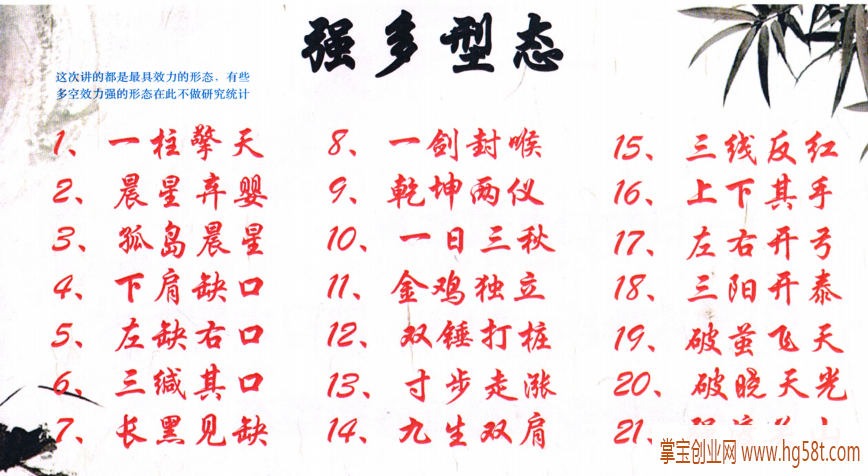 强多型态
这次讲的都是最具效力的形态，有些
多空效力强的形态在此不做研究统计
1、一柱擎天
2、晨星弃婴
3、孤岛晨星
4、下肩缺口
5、左缺右口
6、三缄其口
7、长黑见缺
8、一剑封喉
9、乾坤两仪
10、一日三秋
11、金鸡独立
12、双锤打桩
13、寸步走涨
14、九生双肩
15、三线反红
16、上下其手
17、左右开弓
18、三阳开泰
19、破茧飞天
20、破晓天光
21、
掌宝创业网 www.hg58t.com